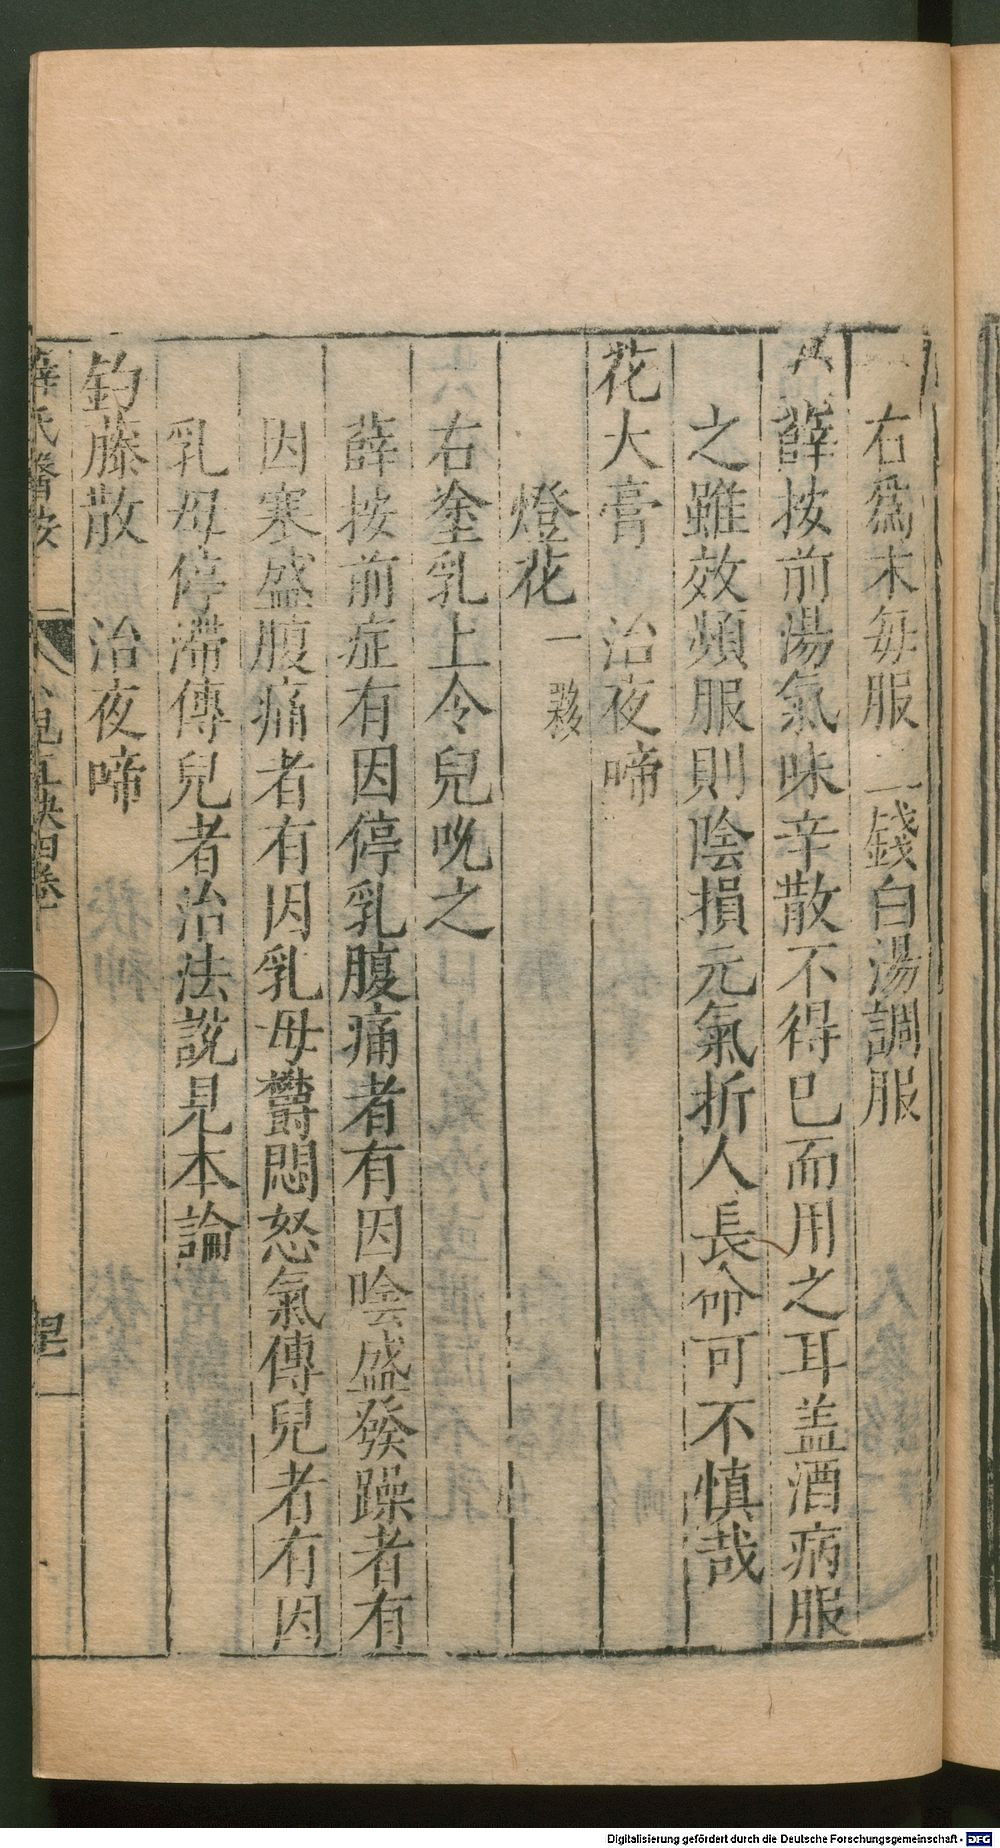 右爲末每服二錢白湯調服
薛按前湯氣味辛散不得已而用之耳盖酒病服
之雖效頻服則陰損元氣折人長命可不慎哉
花大膏 治夜啼
燈花一夥
右塗乳上令兒吮之
薛按前症有因停乳腹痛者有因陰盛發躁者有
因寒盛腹痛者有因乳母欝悶怒氣傳兒者有因
乳母停滯傳兒者治法說見本論
釣藤散 治夜啼
薛氏醫按 小兒直訣四卷
Digitalisierung gefördert durch die Deutsche Forschungsgemeinschaft - DFG